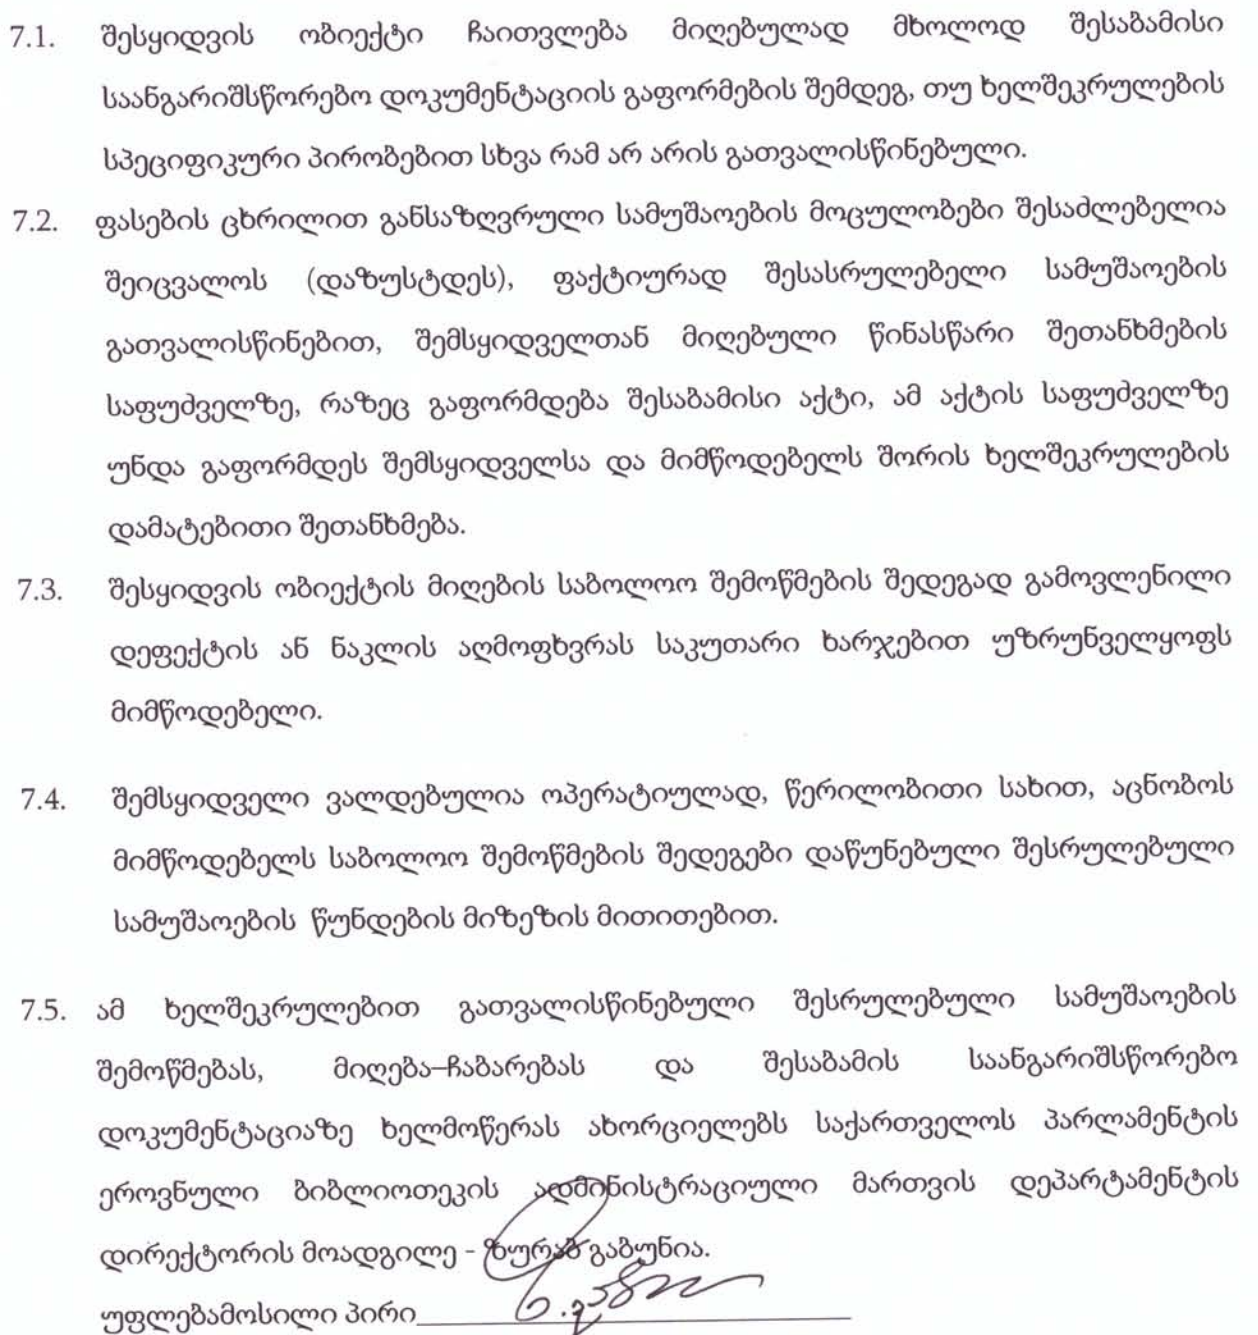 7.1. შესყიდვის ობიექტი ჩაითვლება მიღებულად მხოლოდ შესაბამისი
საანგარიშსწორებო დოკუმენტაციის გაფორმების შემდეგ, თუ ხელშეკრულების
სპეციფიკური პირობებით სხვა რამ არ არის გათვალისწინებული.
7.2. ფასების ცხრილით განსაზღვრული სამუშაოების მოცულობები შესაძლებელია
შეიცვალოს (დაზუსტდეს), ფაქტიურად შესასრულებელი სამუშაოების
გათვალისწინებით, შემსყიდველთან მიღებული წინასწარი შეთანხმების
საფუძველზე, რაზეც გაფორმდება შესაბამისი აქტი, ამ აქტის საფუძველზე
უნდა გაფორმდეს შემსყიდველსა და მიმწოდებელს შორის ხელშეკრულების
დამატებითი შეთანხმება.
7.3. შესყიდვის ობიექტის მიღების საბოლოო შემოწმების შედეგად გამოვლენილი
დეფექტის ან ნაკლის აღმოფხვრას საკუთარი ხარჯებით უზრუნველყოფს
მიმწოდებელი.
7.4. შემსყიდველი ვალდებულია ოპერატიულად, წერილობითი სახით, აცნობოს
მიმწოდებელს საბოლოო შემოწმების შედეგები დაწუნებული შესრულებული
სამუშაოების წუნდების მიზეზის მითითებით.
7.5. ამ ხელშეკრულებით გათვალისწინებული შესრულებული სამუშაოების
შემოწმებას, მიღება–ჩაბარებას და შესაბამის საანგარიშსწორებო
დოკუმენტაციაზე ხელმოწერას ახორციელებს საქართველოს პარლამენტის
ეროვნული ბიბლიოთეკის ადმინისტრაციული მართვის დეპარტამენტის
დირექტორის მოადგილე - ზურაბ გაბუნია.
უფლებამოსილი პირი